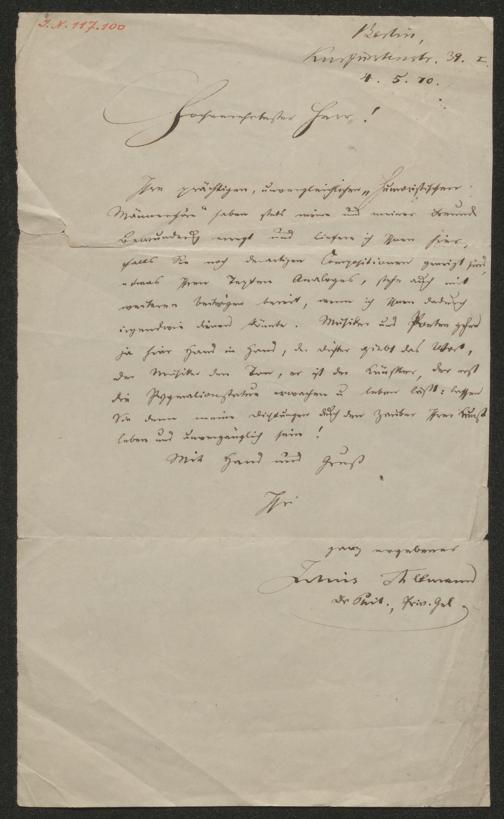 I.N. 117.100
Berlin,
Kurfürstenstr. 39. I.
4. 5. 10.
Hochverehrtester Herr!
Ihre prächtigen, unvergleichlichen „Humoristischen
Männerchöre" haben stets meine und meiner Freunde
Bewunderung erregt und liefere ich Ihnen hier,
falls Sie noch derartigen Compositionen geneigt sind,
etwas Ihren Texten Analoges, stehe auch mit
weiteren Beiträgen bereit, wenn ich Ihnen dadurch
irgendwie dienen könnte. Musiker und Poeten gehen
ja hier Hand in Hand, der Dichter giebt das Wort,
der Musiker den Ton, er ist der Künstler, der erst
die Pygmalionstatue erwachen u leben läßt: lassen
Sie denn meine Dichtungen durch den Zauber Ihrer Kunst
leben und unvergänglich sein!
Mit Hand und Gruß
Ihr
ganz ergebener
Dr phil., Priv. Gel.